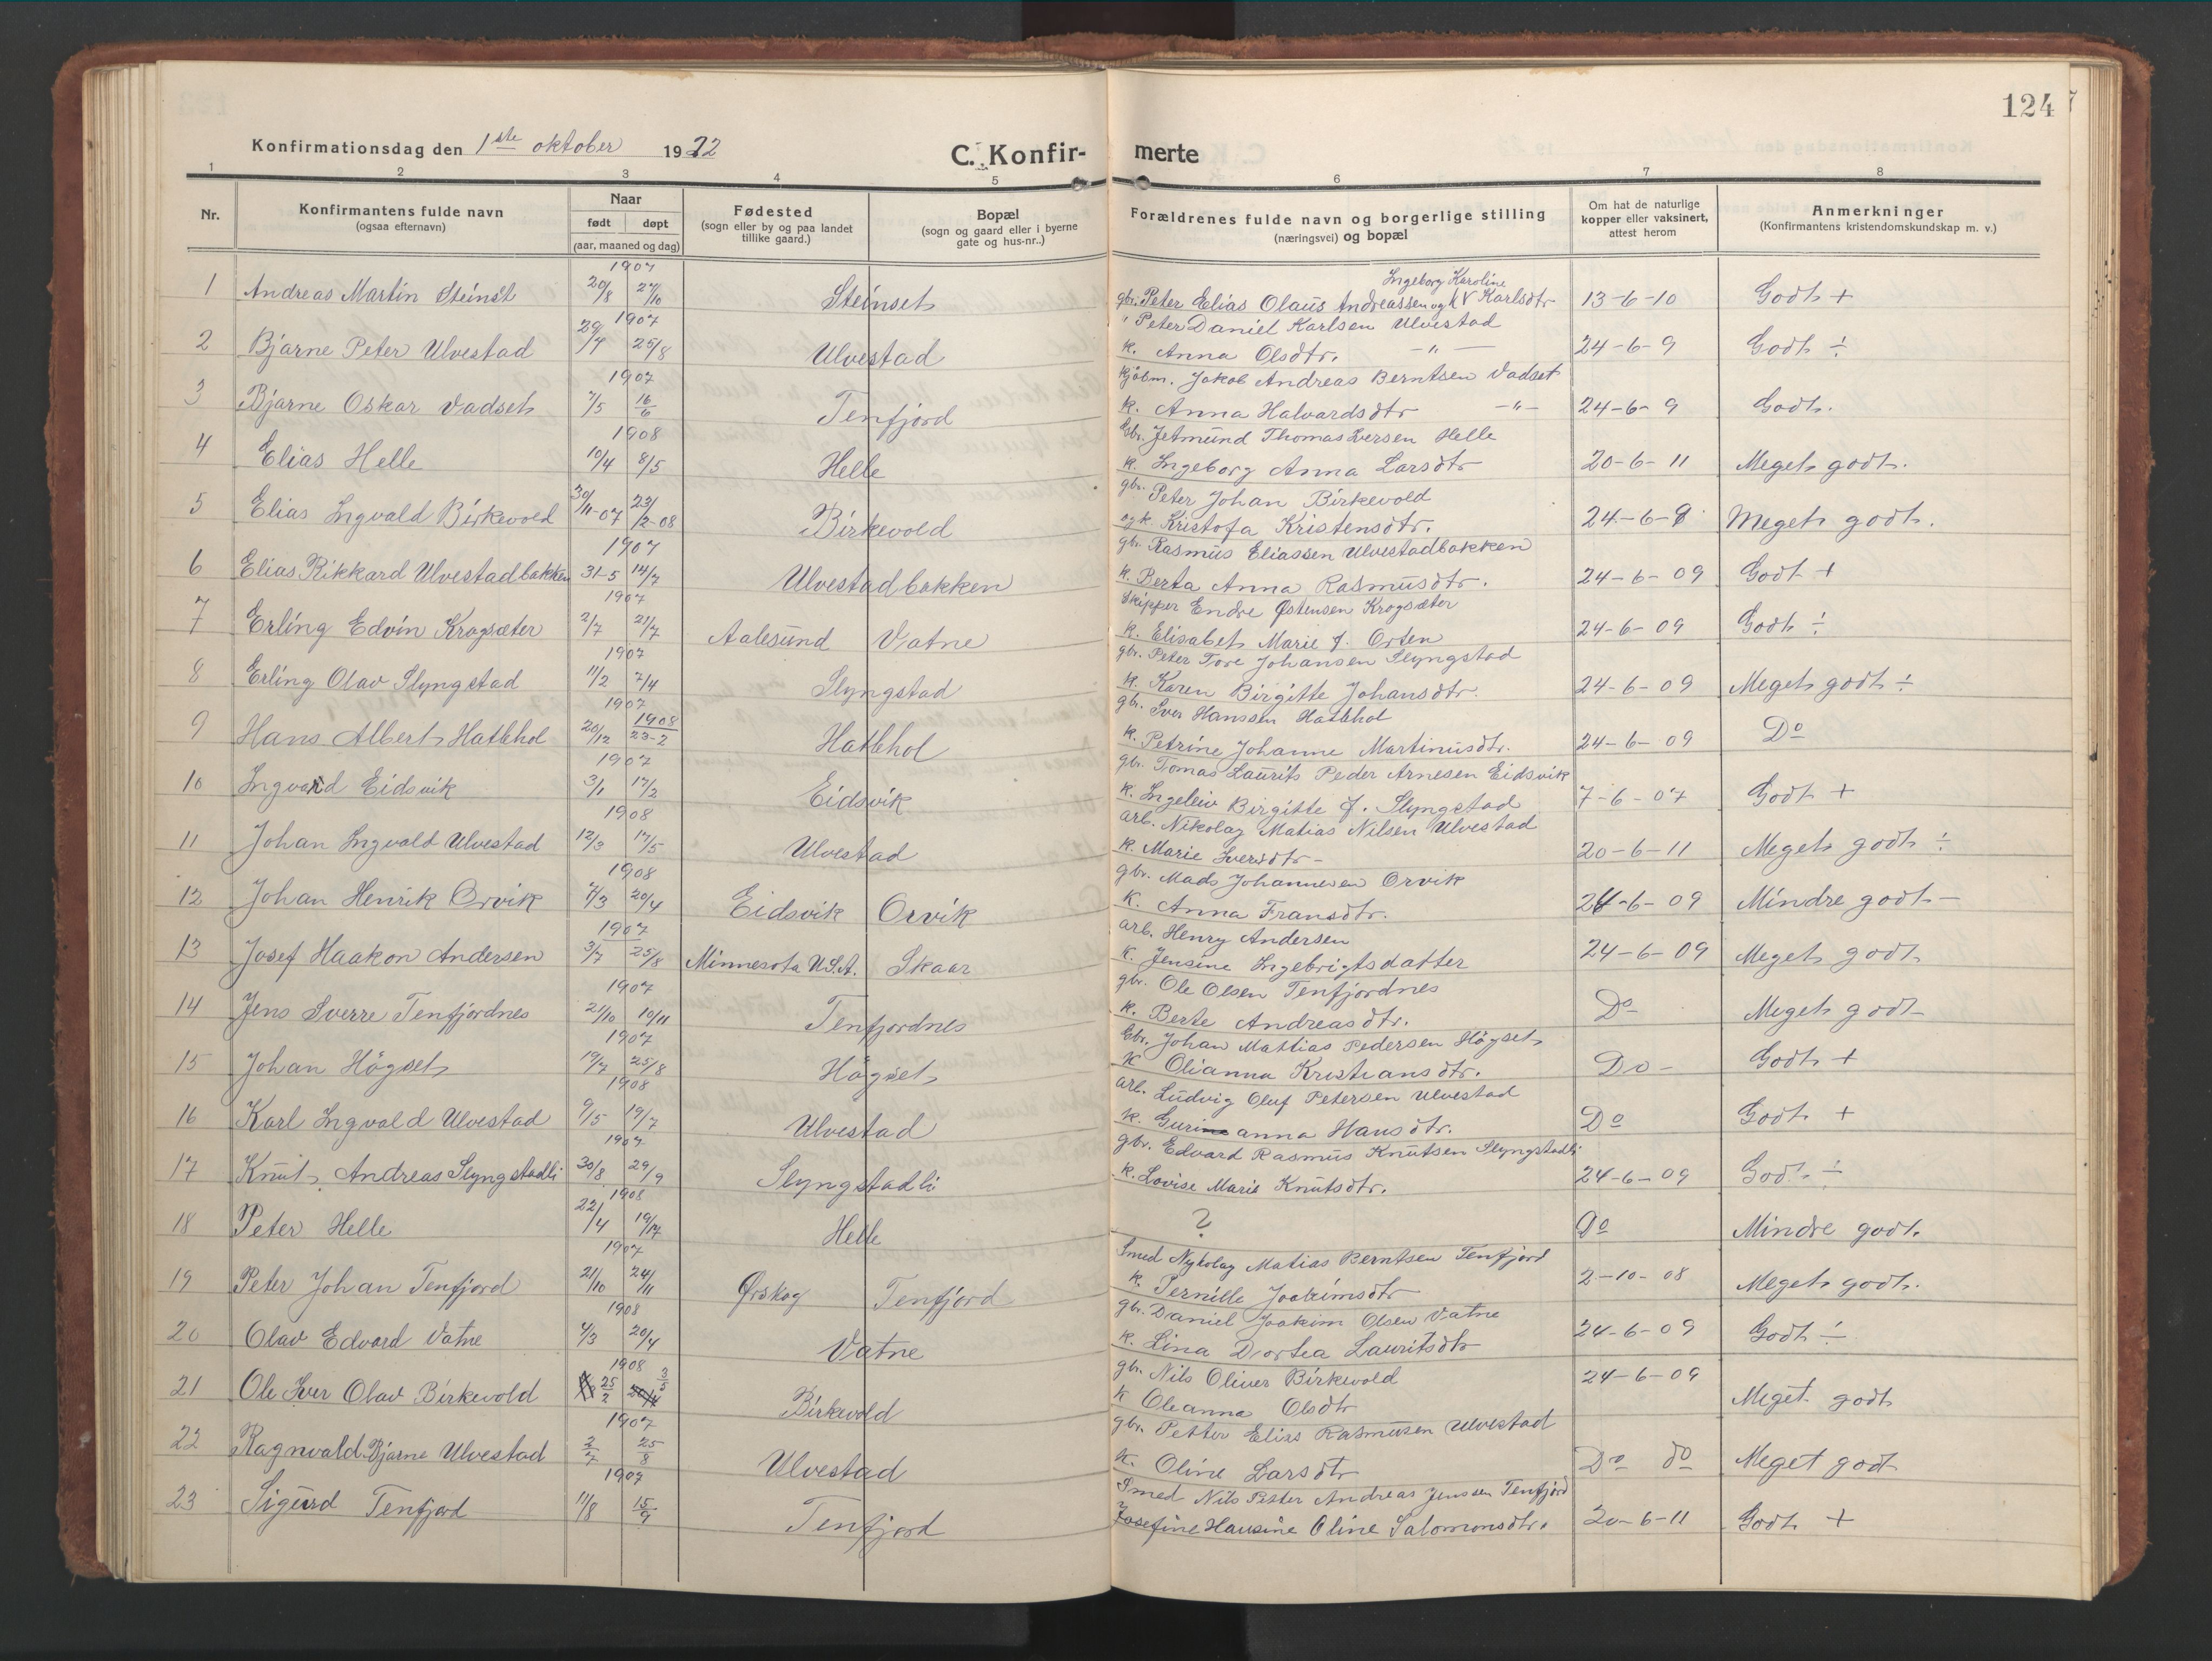 124
Konfirmationsdag den 1ste oktober 1922
C. Konfir- merte
1 2 3 4 5 6 7 8
Nr. Konfirmantens fulde navn (ogsaa efternavn) Naar født døpt (aar, maaned og dag) Fødested (sogn eller by og paa landet tillike gaard.) Bopæl (sogn og gaard eller i byerne gate og hus-nr..) Forældrenes fulde navn og borgerlige stilling (næringsvei) og bopæl Om hat de naturlige kopper eller vaksinert, attest herom Anmerkninger (Konfirmantens kristendomskundskap m. v.)
1907 Ingeborg Karoline
1 Andreas Martin Steinset 20/8 27/10 Steinset gbr. Peter Elias Olaus Andreassen og k V Karlsdtr 13-6-10 Godt +
1907 " Peter Daniel Karlsen Ulvestad
2 Bjarne Peter Ulvestad 29/4 25/8 Ulvestad k. Anna Olsdtr. -"- 24-6-9 Godt ÷
1907 Kjøbm. Jakob Andreas Berntsen Vadset
3 Bjarne Oskar Vadset 7/5 16/6 Tenfjord k. Anna Halvardsdtr -"- 24-6-9 Godt.
1908 Gbr. Jetmund Thomas Iversen Helle
4 Elias Helle 10/4 8/5 Helle k. Ingeborg Anna Larsdtr 20-6-11 Meget godt.
gbr. Peter Johan Birkevold
5 Elias Ingvald Birkevold 30/11-07 23/2-08 Birkevold og k. Kristofa Kristensdtr. 24-6-9 Meget godt.
1907 gbr. Rasmus Eliassen Ulvestadbakken
6 Elias Rikkard Ulvestadbakken 31-5 14/7 Ulvestadbakken k. Berta Anna Rasmusdtr. 24-6-09 Godt +
1907 Skipper Endre Østensen Krogsæter
7 Erling Edvin Krogsæter 2/7 21/7 Aalesund Vatne k. Elisabet Marie J. Orten 24-6-09 Godt ÷
1907 gbr. Peter Tore Johansen Slyngstad
8 Erling Olav Slyngstad 11/2 7/4 Slyngstad k. Karen Birgitte Johansdtr. 24-6-09 Meget godt ÷
1907 gbr. Iver Hanssen Hatlehol
9 Hans Albert Hatlehol 20/12 1908 23-2 Hatlehol k. Petrine Johanne Martinusdtr. 24-6-09 Do
1907 gbr. Tomas Laurits Peder Arnesen Eidsvik
10 Ingvard Eidsvik 3/1 17/2 Eidsvik k. Ingeleiv Birgitte J. Slyngstad 7-6-07 Godt +
1908 arb. Nikolay Matias Nilsen Ulvestad
11 Johan Ingvald Ulvestad 12/3 17/5 Ulvestad k. Marie Iversdtr- 20-6-11 Meget godt ÷
1908 gbr. Mads Johannesen Orvik
12 Johan Henrik Orvik 7/3 20/4 Eidsvik Orvik k. Anna Fransdtr. 24-6-09 Mindre godt-
1907 arb. Henry Andersen
13 Josef Haakon Andersen 3/7 25/8 Minnesota U.S.A. Skaar k. Jensine Ingebrigtsdatter 24-6-09 Meget godt
1907 gbr. Ole Olsen Tenfjordnes
14 Jens Sverre Tenfjordnes 21/10 10/11 Tenfjordnes k. Berte Andreasdtr. Do Meget godt
1907 Gbr. Johan Mattias Pedersen Högset
15 Johan Högset 19/7 25/8 Högset K Olianna Kristiansdtr. Do- Godt +
1908 arb. Ludvig Oluf Petersen Ulvestad
16 Karl Ingvald Ulvestad 9/5 19/7 Ulvestad k. Gurine anna Hansdtr. Do Godt +
1907 gbr. Edvard Rasmus Knutsen Slyngstadli
17 Knut Andreas Slyngstadli 30/8 29/9 Slyngstadli k. Lovise Marie Knutsdtr. 24-6-09 Godt ÷
1908
18 Peter Helle 22/4 Helle ? Do Mindre godt.
1907 Smed Nykolay Matias Berntsen Tenfjord
19 Peter Johan Tenfjord 21/10 24/11 Ørskog Tenfjord k. Pernille Joakimsdtr 2-10-08 Meget godt.
1908 gbr. Daniel Joakim Olsen Vatne
20 Olav Edvard Vatne 4/3 20/4 Vatne k. Lina Dortea Lauritsdtr 24-6-09 Godt ÷
1908 gbr. Nils Oliver Birkevold
21 Ole Iver Olav Birkevold 25/2 3/5 Birkevold K Oleanna Olsdtr 24-6-09 Meget godt
1907 gbr. Petter Elias Rasmusen Ulvestad
22 Ragnvald Bjarne Ulvestad 2/7 25/8 Ulvestad K. Oline Larsdtr Do do Meget godt
1907 Smed Nils Petter Andreas Jenssen Tenfjord
23 Sigurd Tenfjord 11/8 15/9 Tenfjord Josefine Hansine Oline Salomonsdtr. 20-6-11 Godt +